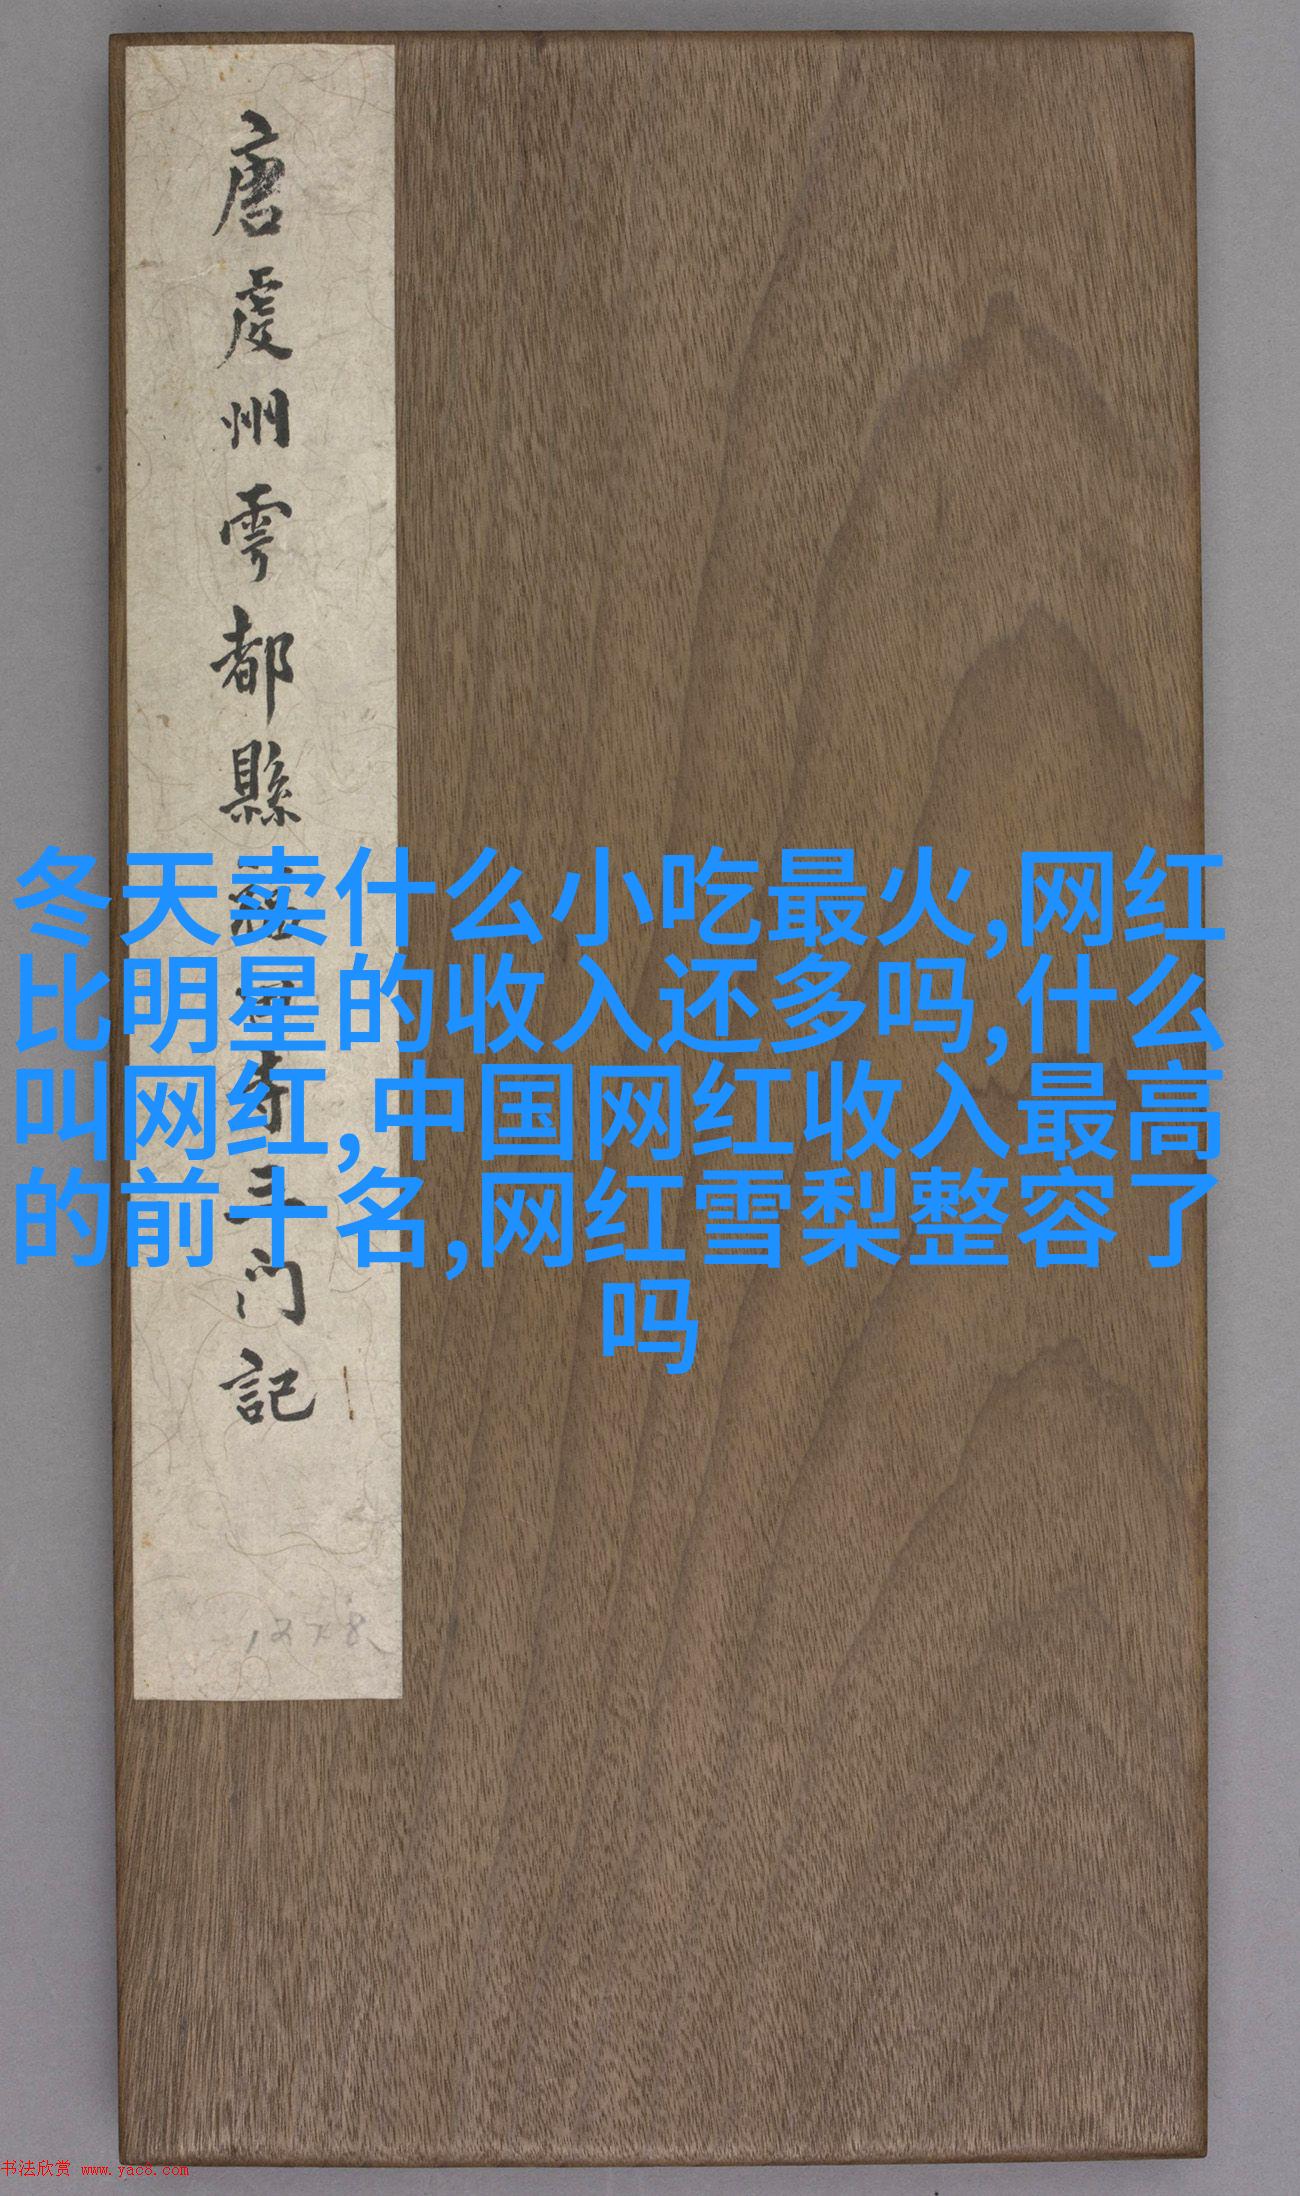 唐虔州雩都縣
寺三门記
1278
冬天卖什么小吃最火,网红
比明星的收入还多吗,什么
叫网红,中国网红收入最高
的前十名,网红雪梨整容了
吗
书法欣赏 www.yac8.com